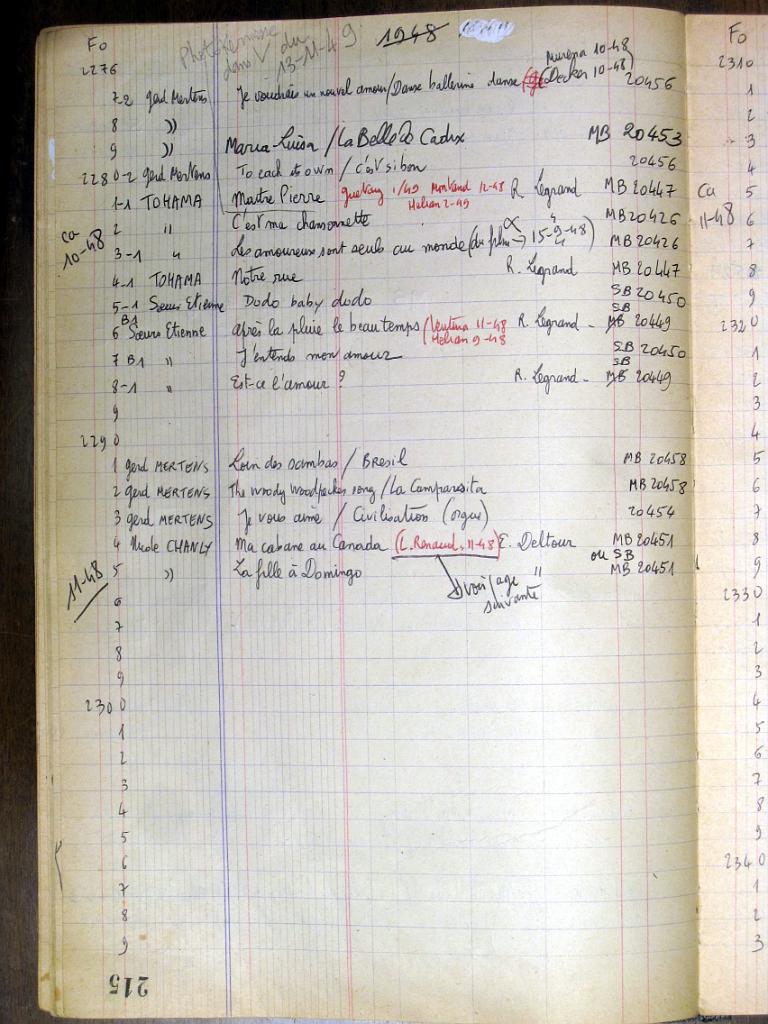 Fo 1948 Fo
dans V du 13-11-49
2276 2310
murena 10-48
7-2 gerd Mertens Je voudrais un nouvel amour/Danse ballerine danse Decker 10-48) 20456 1
8 )) 2
9 )) Maria-Luisa / La Belle de Cadix MB 20453 3
2280-2 gerd Mertens To each its own / c'est si bon 20456 4
1-1 TOHAMA Maître Pierre guetary 1/49 Montand 12-48 Helian 2-49 R. Legrand MB 20447 ca 5
2 " C'est ma chansonnette MB 20426 11-48 6
ca 10-48 3-1 " Les amoureux sont seuls au monde (du film → 15-9-48) MB 20426 7
4-1 TOHAMA Notre rue R. Legrand MB 20447 8
5-1 Sœurs Etienne Dodo baby dodo SB 20450 9
6 B1 Sœurs Etienne après la pluie le beau temps (Ventura 11-48 Helian 9-48 R. Legrand - SB MB 20449 2320
7 B1 " J'entends mon amour SB 20450 1
8-1 " Est-ce l'amour ? R. Legrand - SB MB 20449 2
9 3
2290 4
1 gerd MERTENS Loin des sambas / Bresil MB 20458 5
2 gerd MERTENS The woody woodpecker song / La Comparsita MB 20458 6
3 gerd MERTENS Je vous aime / Civilisation (orgue) 20454 7
4 Nicole CHANLY Ma cabane au Canada (L. Renaud. 11-48) E. Deltour MB 20451 8
ou SB
11-48 5 )) La fille à Domingo " MB 20451 9
voir page suivante
6 2330
7 1
8 2
9 3
2300 4
1 5
2 6
3 7
4 8
5 9
6 2340
7 1
8 2
9 3
215